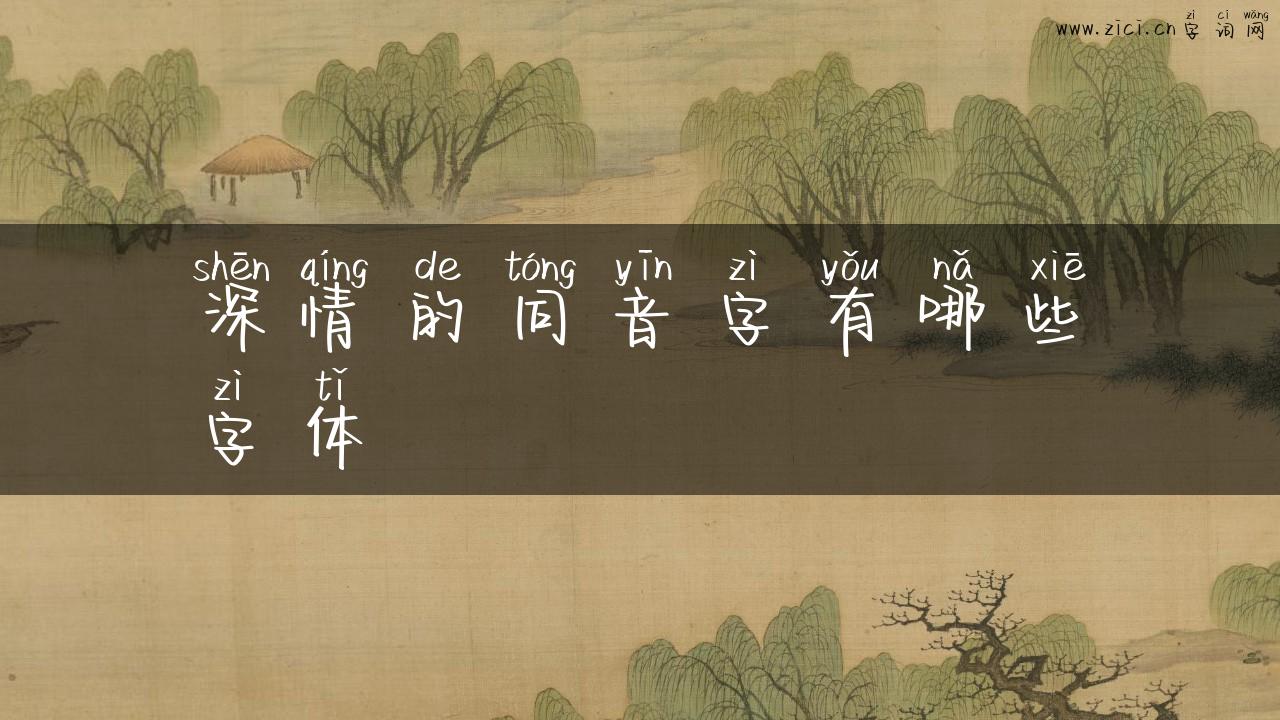 zì cí wǎng
www.zici.cn字词网
shēn qíng de tóng yīn zì yǒu nǎ xiē
深情的同音字有哪些
zì tǐ
字体